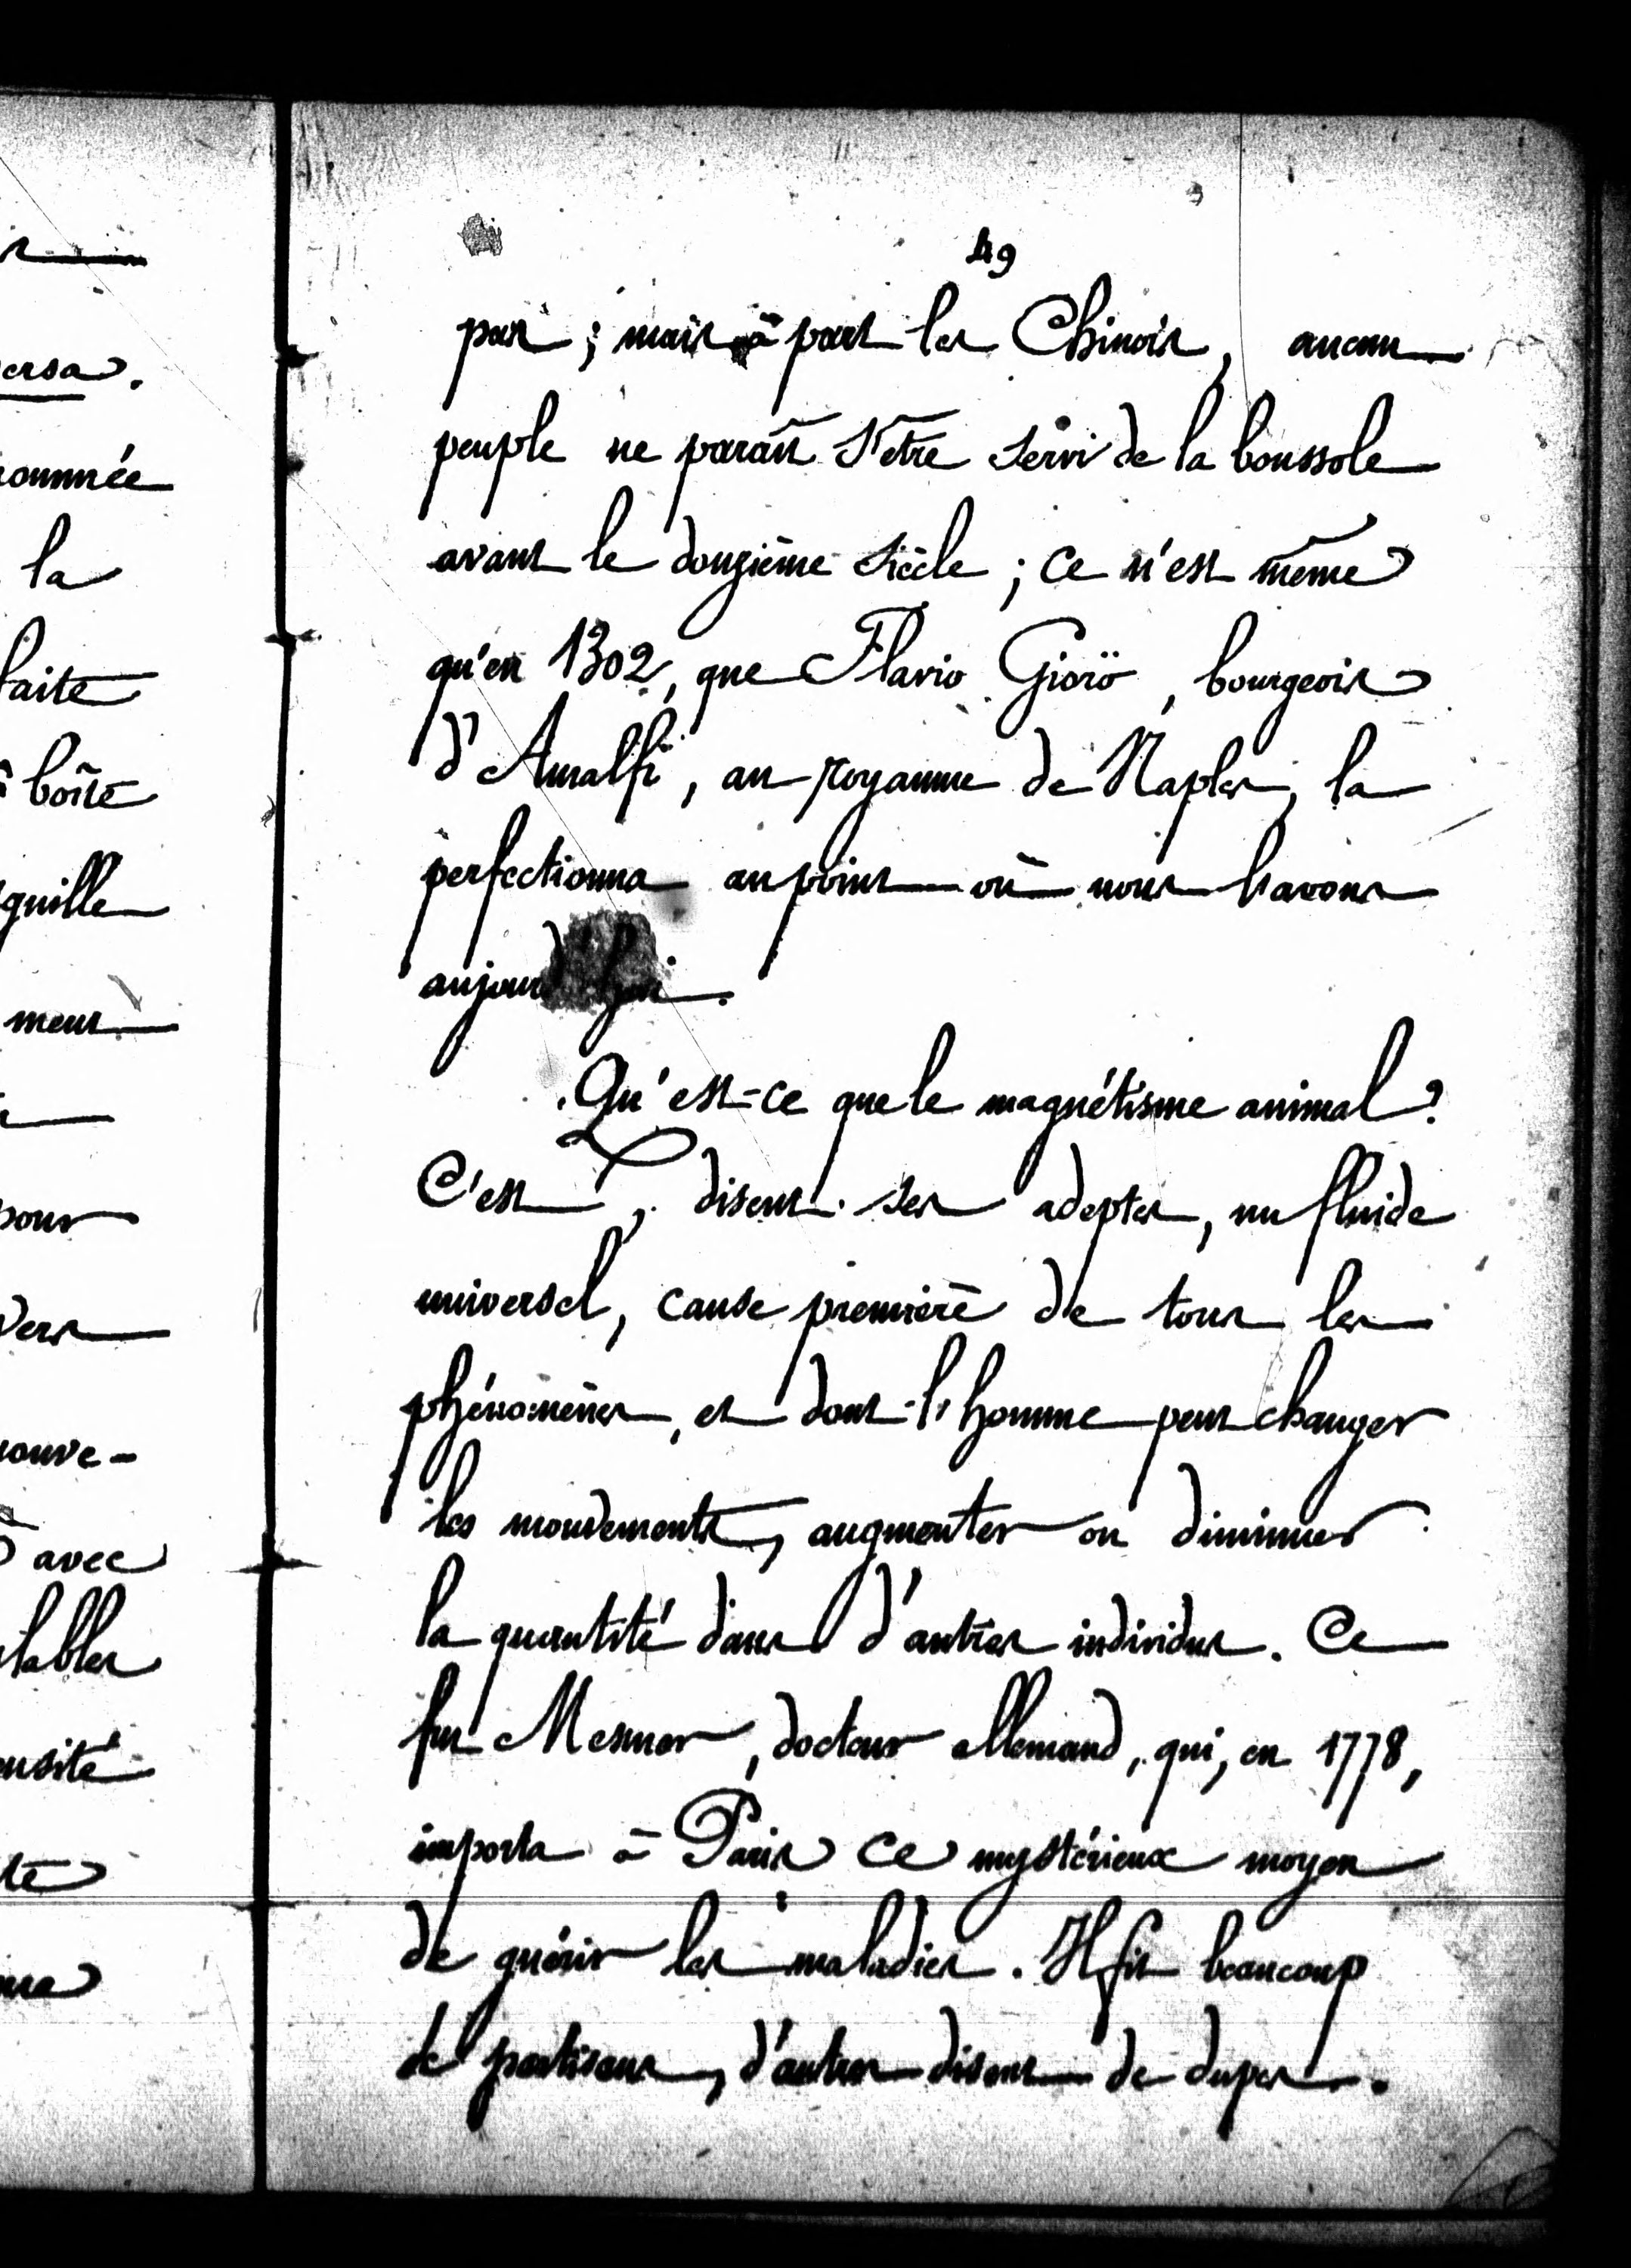 r
ersa.
ommée
la
faite
boîte
guille
ment
pour
vers
ouve-
avec
tables
nsité
té
me
49
pas ; mais à part les Chinois, aucun
peuple ne paraît s'être servi de la boussole
avant le douzième siècle ; ce n'est même
qu'en 1302, que Flavio Gioïo, bourgeois
d'Amalfi, au royaume de Naples, la
perfectionna au point où nous l'avons
aujourd'hui.
Qu'est-ce que le magnétisme animal ?
C'est, disent ses adeptes, un fluide
universel, cause première de tous les
phénomènes, et dont l'homme peut changer
les mouvements, augmenter ou diminuer
la quantité dans d'autres individus. Ce
fut Mesmer, docteur allemand, qui, en 1778,
importa à Paris ce mystérieux moyen
de guérir les maladies. Il fit beaucoup
de partisans, d'autres disent de dupes.